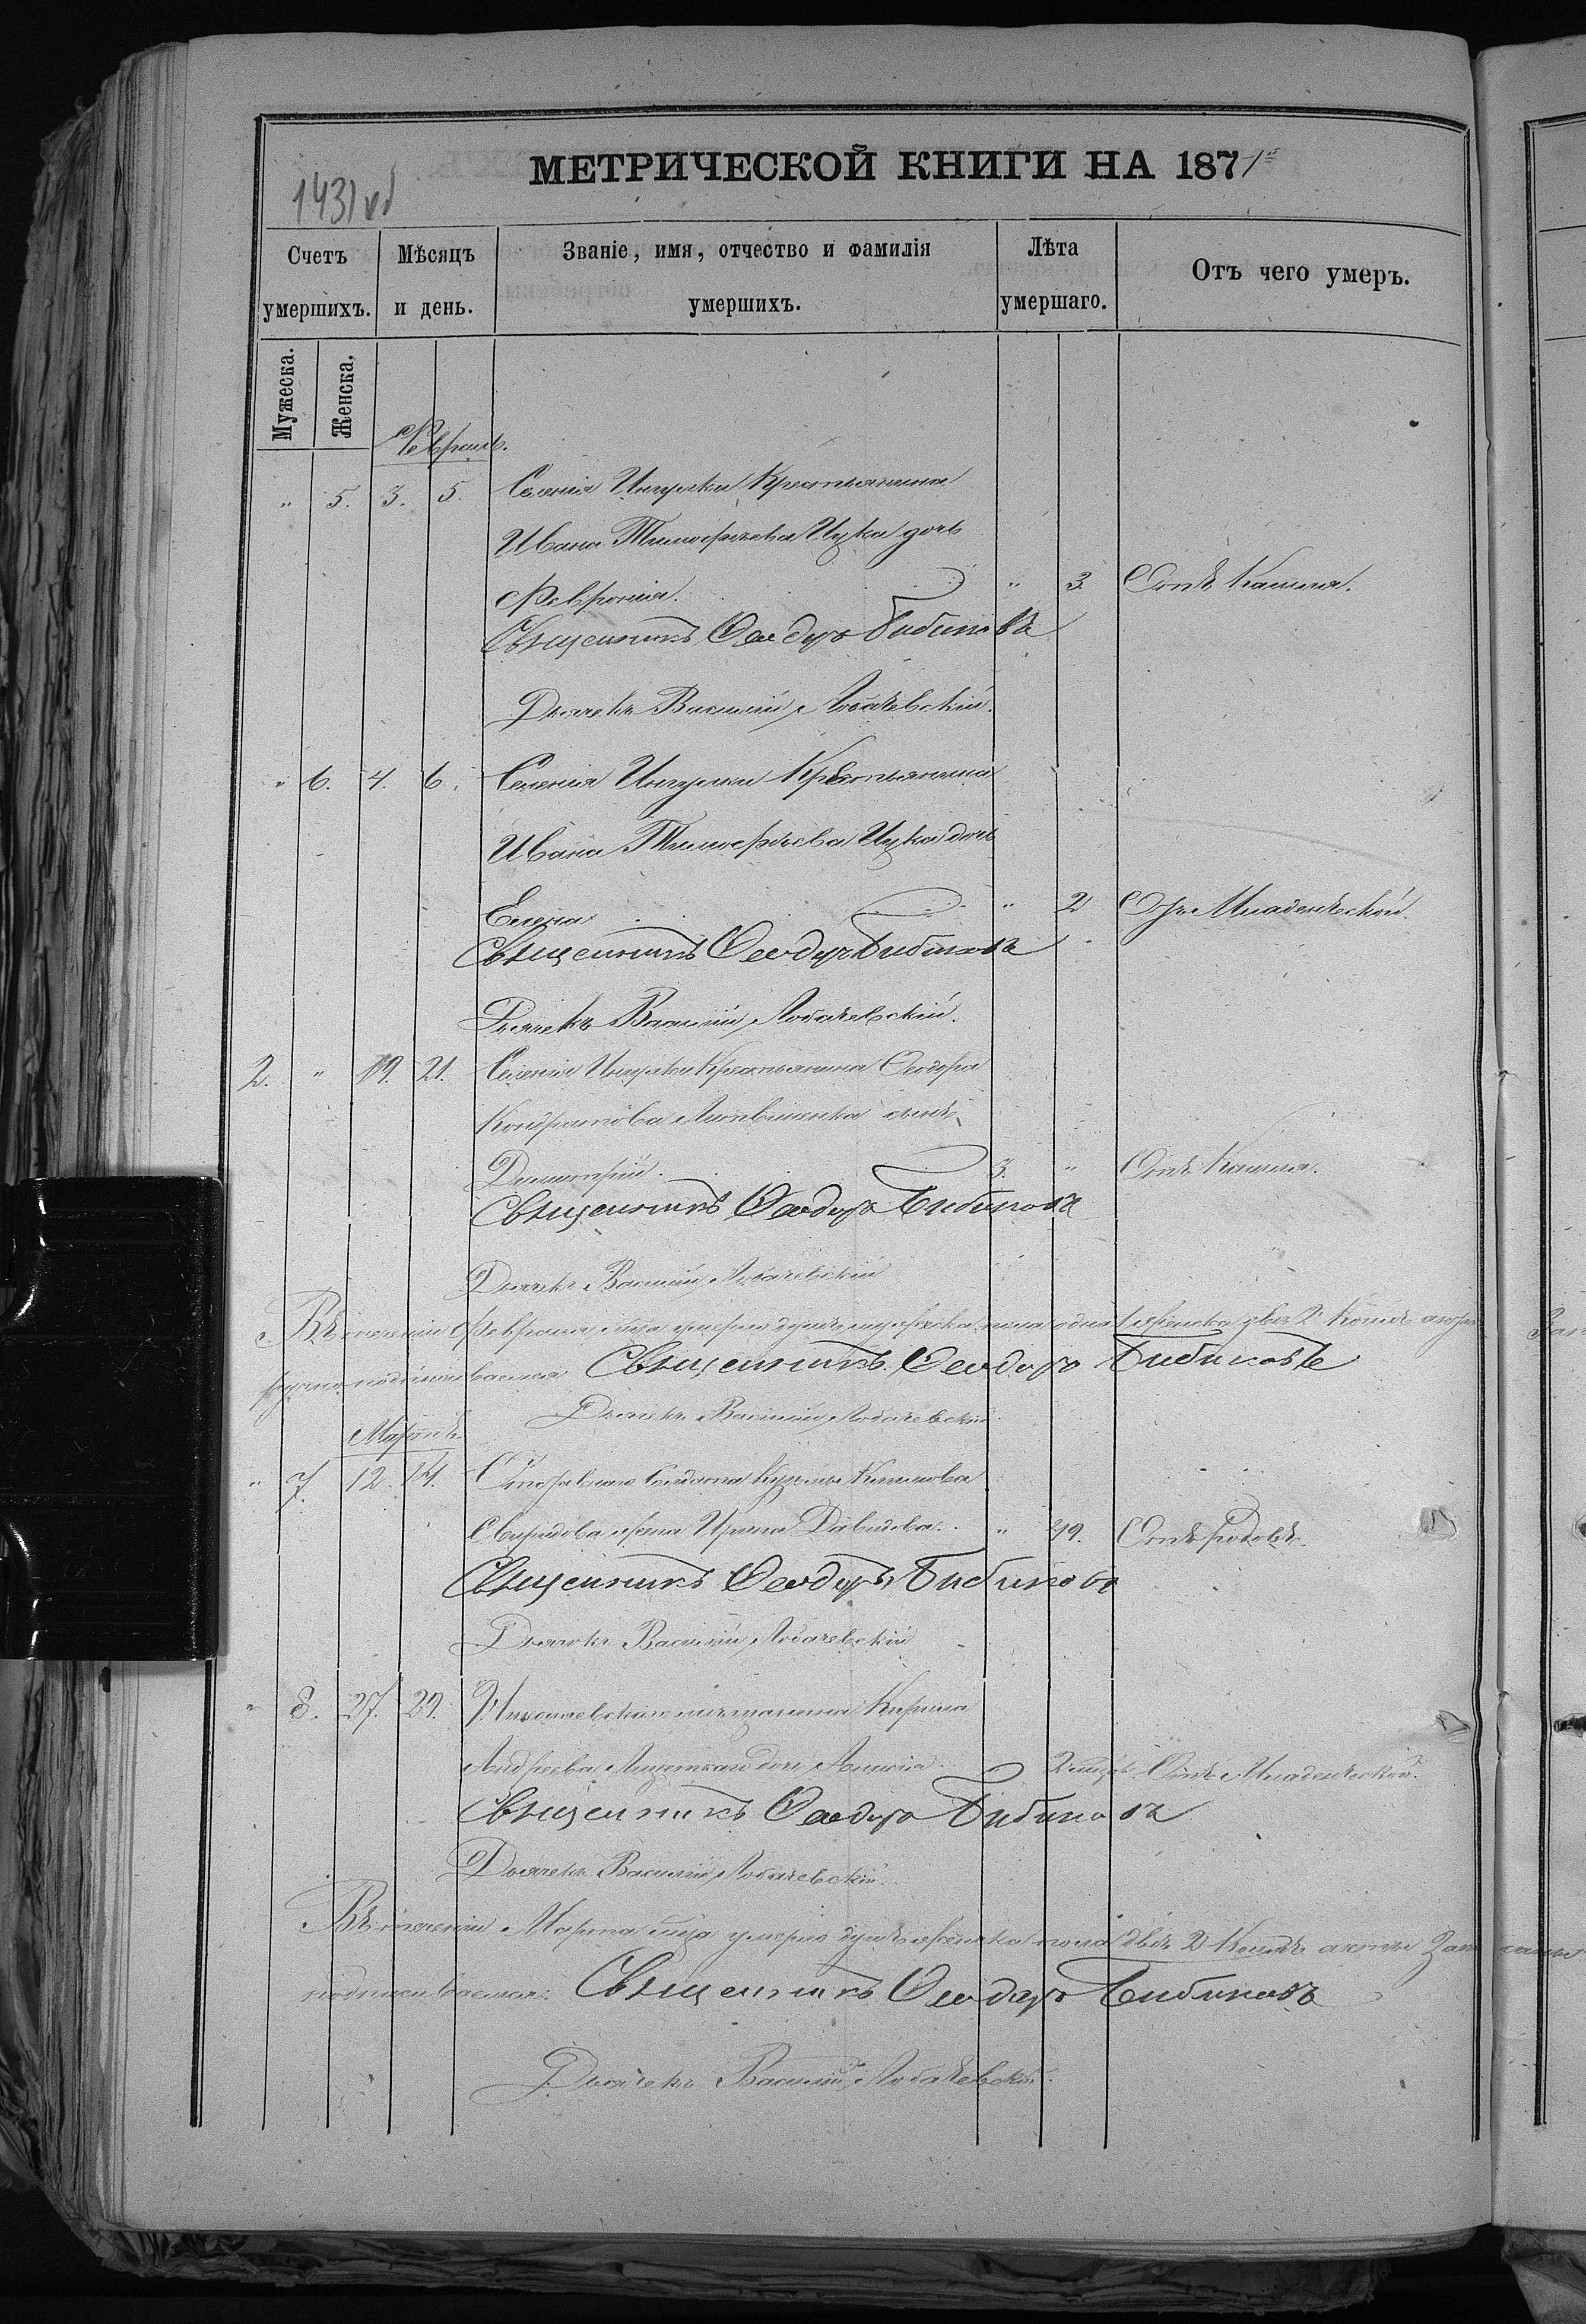 МЕТРИЧЕСКОЙ КНИГИ НА 1871
1431 об
Счетъ умершихъ.
Мѣсяцъ и день.
Званіе, имя, отчество и фамилія умершихъ.
Лѣта умершаго.
Отъ чего умеръ.
Мужеска.
Женска.
Февраль.
" 5. 3. 5. Селенія Ингулки Крестьянина
Ивана Тимофеева Цука дочь
Феврония. " 3 Отъ Кашля.
Священникъ Феодоръ Бибиковъ
Дьячекъ Василій Лобачевскій.
" 6. 4. 6. Селенія Ингулки Крестьянина
Ивана Тимофѣева Цука дочь
Елена " 2 Отъ Младенческой.
Священникъ Феодоръ Бибиковъ
Дьячекъ Василій Лобачевскій.
2. " 19. 21. Селенія Ингулки Крестьянина Феодора
Кондратова Литвиненка сынъ
Димитрій. 3. " Отъ Кашля.
Священникъ Феодоръ Бибиковъ
Дьячекъ Василій Лобачевскій
Въ теченіи Февраля м-ца умерло душъ мужеска пола одна 1 женска двѣ 2
подписываемся Священникъ Феодоръ Бибиковъ
Дьячекъ Василій Лобачевскій
Мартъ
" 7. 12. 14. Отставнаго Кузьмы
Свиридова жена Ирина Давидова. " 49. Отъ родовъ.
Священникъ Феодоръ Бибиковъ
Дьячекъ Василій Лобачевскій
" 8. 27. 29. Николаевскаго мѣщанина Кирила
Андреева дочь 2 Отъ Младенческой.
Священникъ Феодоръ Бибиковъ
Дьячекъ Василій Лобачевскій.
Въ теченіи Марта м-ца умерло душъ женска пола двѣ 2
подписываемся: Священникъ Феодоръ Бибиковъ
Дьячекъ Василій Лобачевскій.